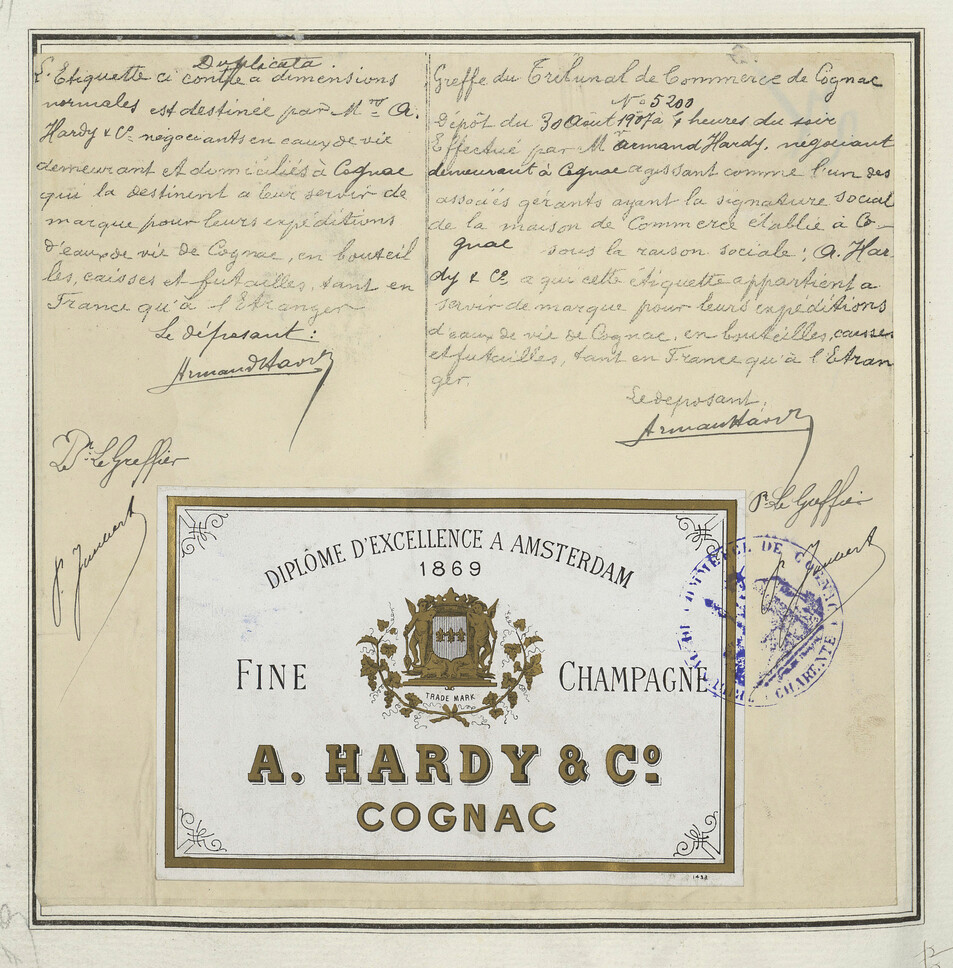 Duplicata
L'Etiquette ci contre à dimensions
normales est destinée par M.rs A.
Hardy & Cº négociants en eaux de vie
demeurant et domiciliés à Cognac
qui la destinent à leur servir de
marque pour leurs expéditions
d'eaux de vie de Cognac, en bouteil
les, caisses et futailles, tant en
France qu'à l'Etranger
Le déposant:
Armand Hardy
Le Greffier
Greffe du Tribunal de Commerce de Cognac
Nº 5200
Dépôt du 30 Août 1907 à 4 heures du soir
Effectué par Mr Armand Hardy, négociant
demeurant à Cognac agissant comme l'un des
associés gérants ayant la signature social
de la maison de Commerce établie à Co-
gnac sous la raison sociale; A. Har
dy & Cº a qui cette étiquette appartient a
servir de marque pour leurs expéditions
d'eaux de vie de Cognac, en bouteilles, caisses
et futailles, tant en France qu'à l'Etran
ger.
Le déposant,
Armand Hardy
Pr Le Greffier
DIPLÔME D'EXCELLENCE A AMSTERDAM
1869
FINE CHAMPAGNE
TRADE MARK
A. HARDY & Cº
COGNAC
1438
DE COGNAC
CHARENTE